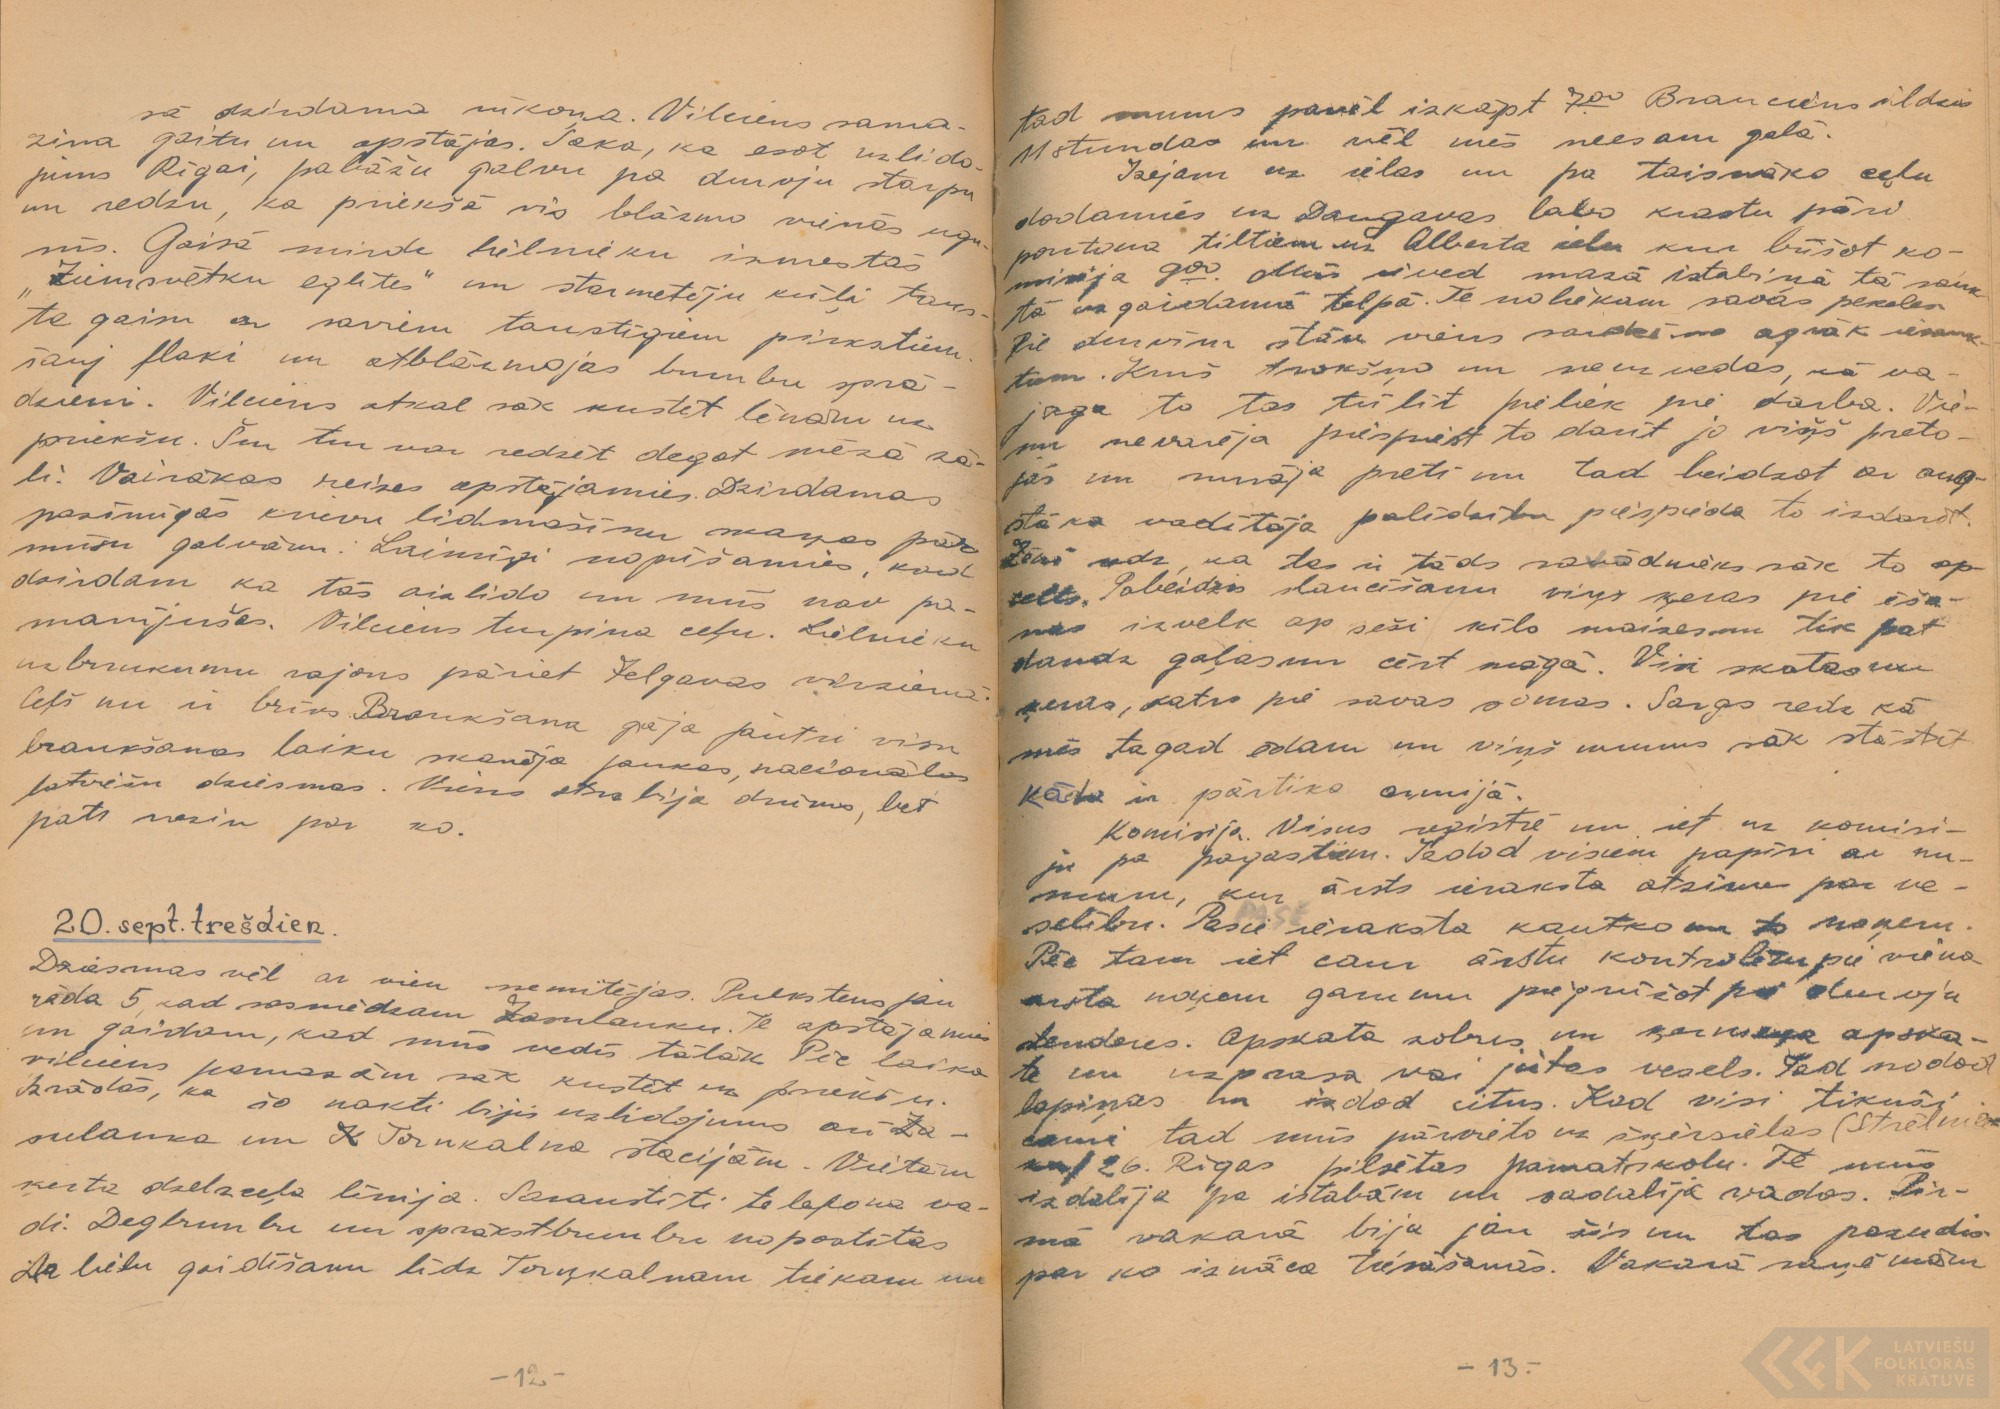 sā dzirdama rīkoņa. Vilciens sama-
zina gaitu un apstājas. Saka, ka esot uzlido-
jums Rīgai, pabāžu galvu pa durvju starpu
un redzu, ka priekšā viss blāzmo vienās ugu-
nīs. Gaisā mirdz lielnieku izmestās
„Ziemsvētku eglītes" un starmetēju kūļi traus-
ta gaisu ar saviem taustīgiem pirkstiem.
šauj flaki un atblāzmojas bumbu sprā-
dzieni. Vilciens atkal sāk kustēt lēnām uz
priekšu. Šur tur var redzēt degot mežā zā-
li. Vairākas reizes apstājamies. Dzirdamas
pazīmīgās krievu lidmašīnu skaņas pār
mūsu galvām. Laimīgi nopūšamies, kad
dzirdam ka tās aizlido un mūs nav pa-
manījušas. Vilciens turpina ceļu. Lielnieku
uzbrukumu rajons pāriet Jelgavas virzienā.
Ceļš nu ir brīvs. Braukšana gāja jautri visu
braukšanas laiku skanēja jaukas, nacionālas
latviešu dziesmas. Viens otrs bija drūms, bet
pats nezin par ko.
20. sept. trešdien.
Dziesmas vēl ar vien nemitējas. Pulkstens jau
rāda 5, kad sasniedzam Zasulauku. Te apstājamies
un gaidam, kad mūs vedīs tālāk. Pēc laika
vilciens pamazām sāk kustēt uz priekšu.
Izrādās, ka šo nakti bijis uzlidojums arī Za-
sulauka un Torņkalna stacijām. Vietām
ķerta dzelzceļa līnija. Saraustīti telefona va-
di. Degbumbu un sprāgstbumbu nopostītas
Ar lielu gaidīšanu līdz Torņkalnam tiekam un
-12-
tad mums pavēl izkāpt 7⁰⁰ Brauciens ildzis
11 stundas un vēl mēs neesam galā.
Izejam uz ielas un pa taisnāko ceļu
dodamies uz Daugavas labo krastu pāri
pontona tiltiem uz Alberta ielu kur būšot ko-
misija 9⁰⁰. Mūs ieved mazā istabiņā tā sauk-
tā uzgaidāmā telpā. Te noliekam savas pekeles
Pie durvīm stāv viens no agrāk iesauk-
tiem. Kurš trokšņo un neuzvedas, kā va-
jaga to tas tūlīt pieliek pie darba. Vie-
nu nevarēja piespiest to darīt jo viņš preto-
jās un runāja pretī nu tad beidzot ar aug-
stāka vadītāja palīdzību piespieda to izdarīt.
Zēni redz, ka tas ir tāds savādnieks sāk to ap
celt. Pabeidzis slaucīšanu viņš ķeras pie ēša-
nas izvelk ap seši kilo maizes un tik pat
daudz gaļas un cērt māgā. Visi skatas un
ķeras, katrs pie savas somas. Sargs redz kā
mēs tagad ēdam un viņš mums sāk stāstīt
Kāda ir pārtika armijā.
Komisija. Visus reģistrē un iet uz komisi-
ju pa pagastiem. Izdod visiem papīri ar nu-
muru, kur ārsts ieraksta atzīmes par ve-
selību. Pasē ieraksta kautko un to noņem.
Pēc tam iet caur ārstu kontrolēm pie viena
ārsta noņem garumu piegrūžot pie durvju
stenderes. Apskata zobus un ķermeņa apska-
te un uzprasa vai jūtas vesels. Tad nodod
lapiņas un izdod citus. Kad visi tikuši
cauri tad mūs pārvieto uz šķērsielas (Strēlnie
ku) 26. Rīgas pilsētas pamatskolu. Te mūs
izdalīja pa istabām un sadalīja vados. Pir-
mā vakarā bija jau šis un tas pazudis
par ko iznāca tiesāšanās. Vakarā saņēmām
-13-
LATVIEŠU
FOLKLORAS
KRĀTUVE